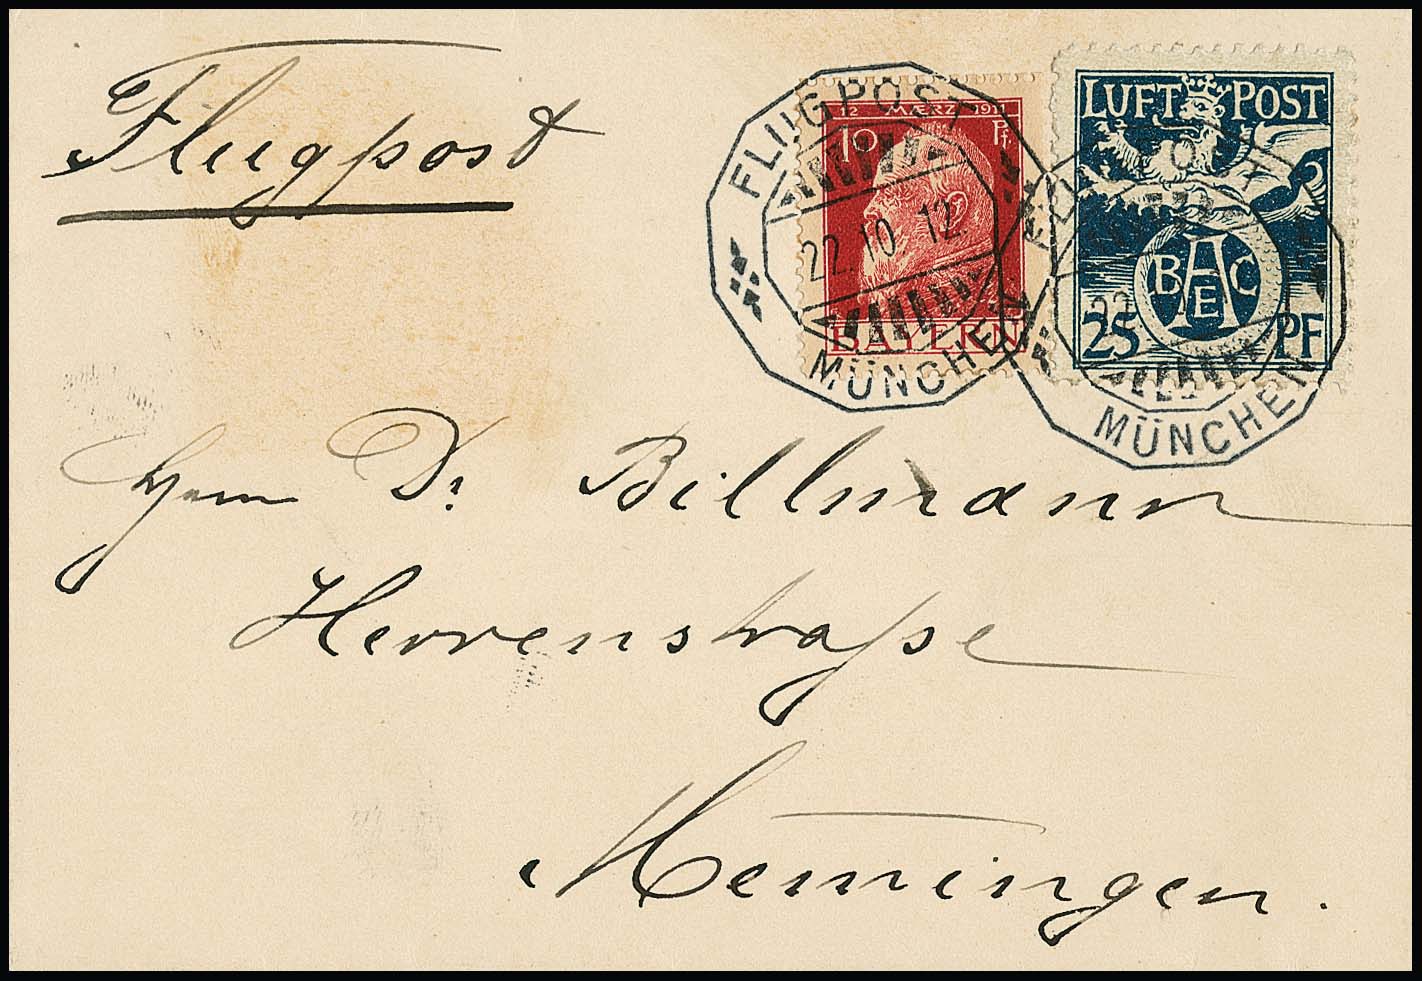 Flugpost
12 MÆRZ 1911
10 Pf
BAYERN
FLUGPOST
22.10.12
MÜNCHEN
LUFT POST
BAEC
25 PF
FLUGPOST
22
MÜNCHEN
Herrn Dr. Billmann
Herrenstraße
Memingen.